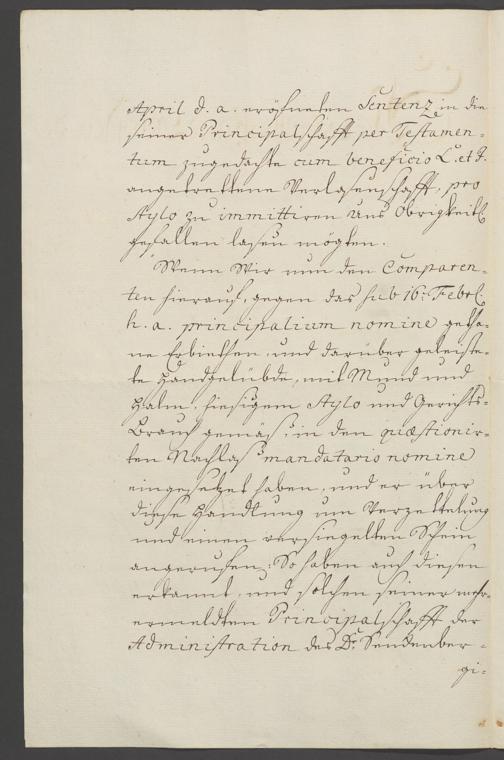 April d. a. eröfneten Sentenz in die
seiner Principalschafft per Testamen-
tum zugedachte cum beneficio L. et J.
angetrettene Verlasenschafft, pro
Stylo zu immittiren Uns Obrigkeitl.
gefallen lasen mögten.
Wenn Wir nun den Comparen-
ten hierauf, gegen das sub 16. Febr.
h. a. principalium nomine getha-
ne Erbiethen, und darüber geleiste-
te Handgelübde, mit Mund und
Halm, hiesigem Stylo und Gerichts-
Brauch gemäs, in den quæstionir-
ten Nachlas mandatario nomine
eingesetzet haben, und er über
diese Handlung um Verzettelung
und einen versiegelten Schein
angerufen: So haben auch diesen
erkannt, und solchen seiner mehr-
ermeldten Principalschafft der
Administration des Dr. Senckenber-
gi-